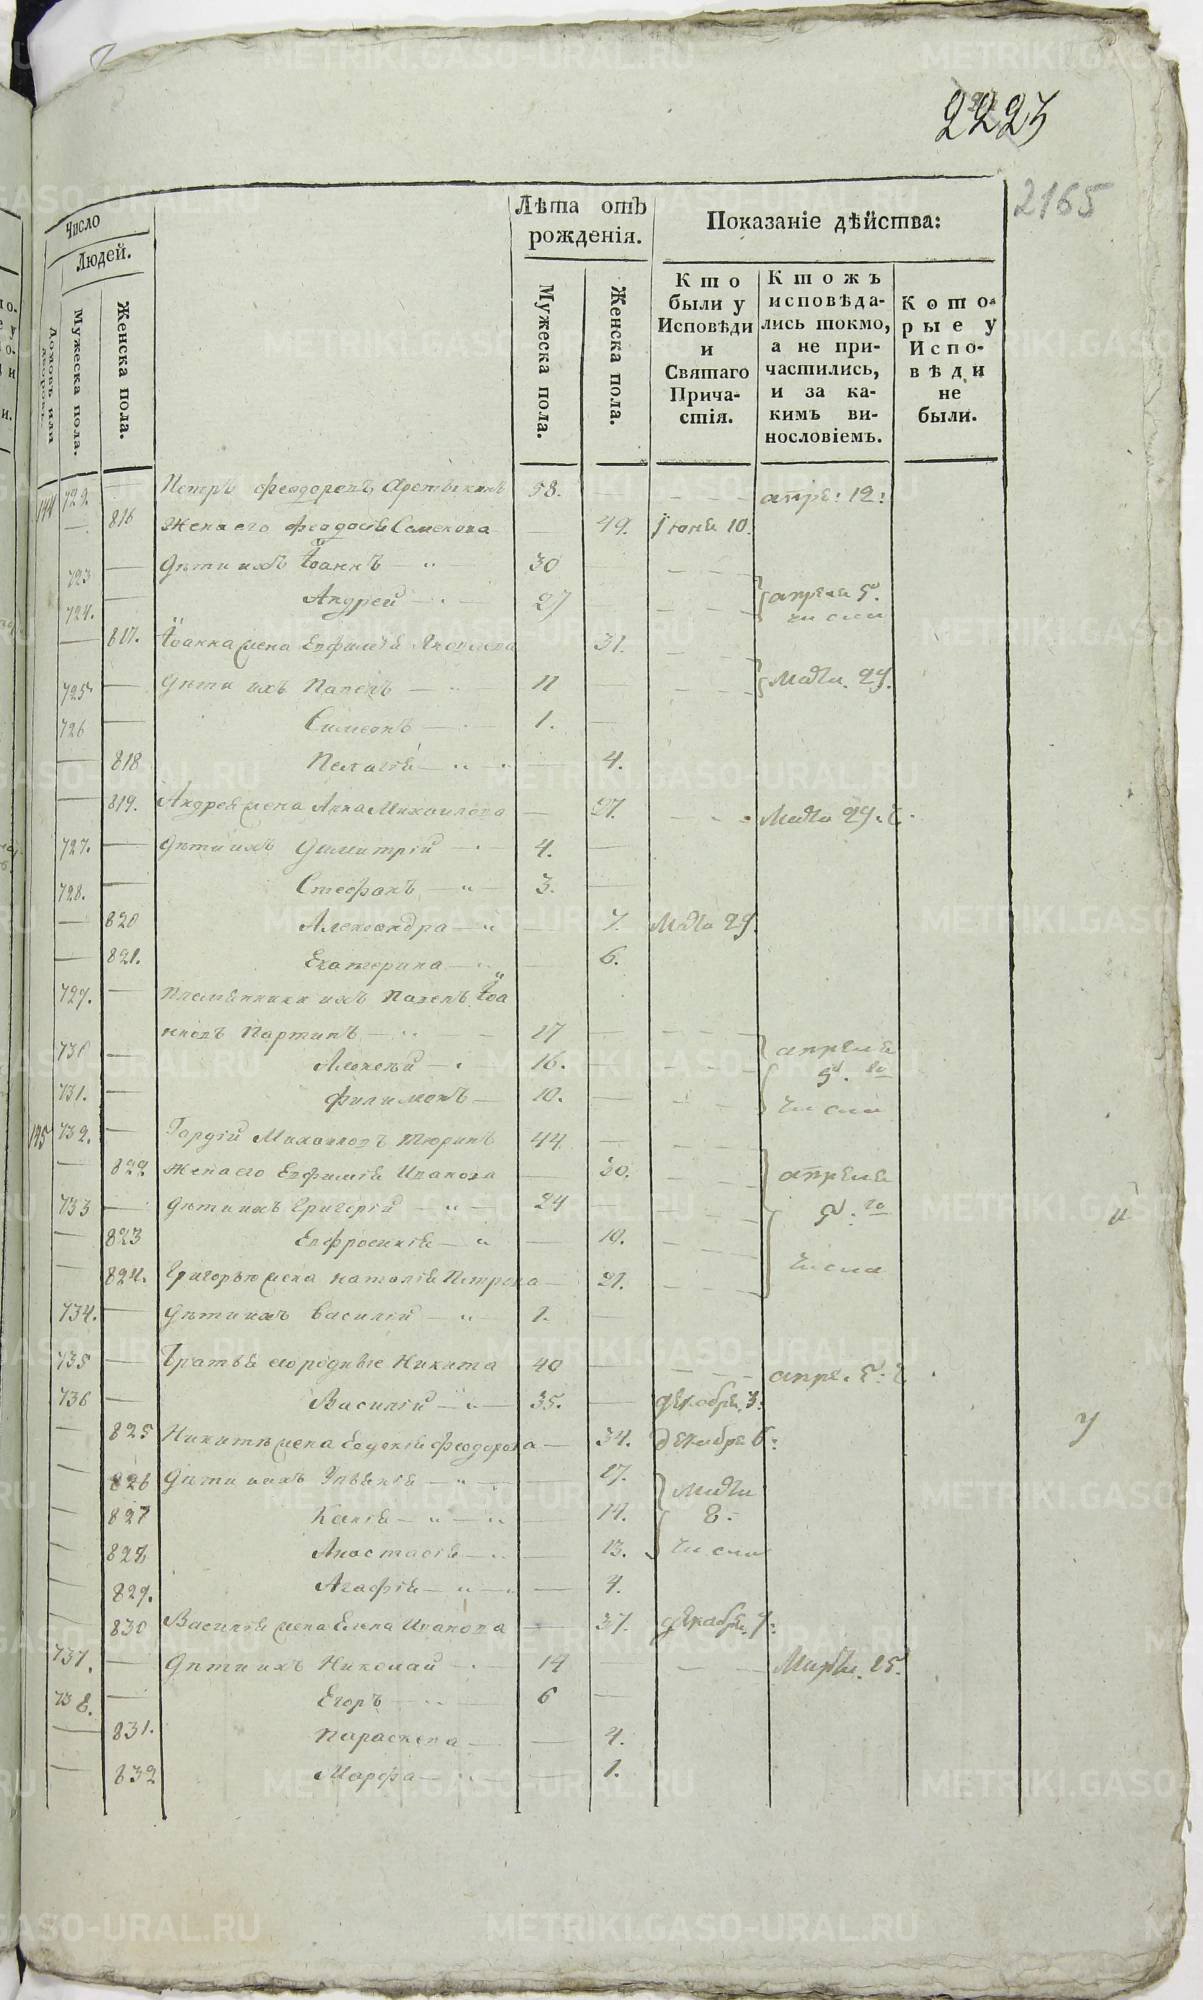 2223
2165
Число
Людей.
Домовъ или дворовъ.
Мужеска пола.
Женска пола.
Лѣта отъ рожденія.
Мужеска пола.
Женска пола.
Показаніе дѣйства:
Кто были у Исповѣди и Святаго Причастія.
Ктожъ исповѣдались токмо, а не причастились, и за какимъ винословіемъ.
Которые у Исповѣди не были.
144 722 Петръ Феодоровъ 58. апре: 12:
816 Жена его Феодосія Семенова 49. Іюня 10.
723 Дѣти ихъ Іоаннъ 30
724. Андрей 27 апреля 5. числа
817. Іоанна жена Евфимія Яковлева 31.
725 Дѣти ихъ Павелъ 11 29.
726 Симеонъ 1.
818 Пелагія 4.
819. Андрея жена Анна Михаилова 27. 29. ч.
727. Дѣти ихъ Димитрій 4.
728. Стефанъ 3.
820 Александра 7. 29.
821. Екатерина 6.
729. Племянники ихъ Павелъ Іоа
нновъ Мартинъ 17
730 Алексѣй 16. апреля
731. Филимонъ 10. числа
145 732. Гордій Михаиловъ Тюринъ 44
822 Жена его Евфимія Иванова 30. апреля
733 Дѣти ихъ Григорій 24 го
823 Евфросинія 10. числа
824. Григорью жена Наталія Петрова 21.
734. Дѣти ихъ Василій 1.
735 Братья его родные Никита 40 апре. 5: ч
736 Василій 35. декабря 3:
825 Никиты жена Евдокія Феодорова 34. декабря 6:
826 Дѣти ихъ 17.
827 Ксенія 14. 8.
828 Анастасія 13. числа
829. Агафія 4.
830 Василія жена Елена Иванова 37. декабря 7:
737. Дѣти ихъ Николай 14 25.
738. Егоръ 6
831. Параскева 4.
832 Марфа 1.
METRIKI.GASO-URAL.RU